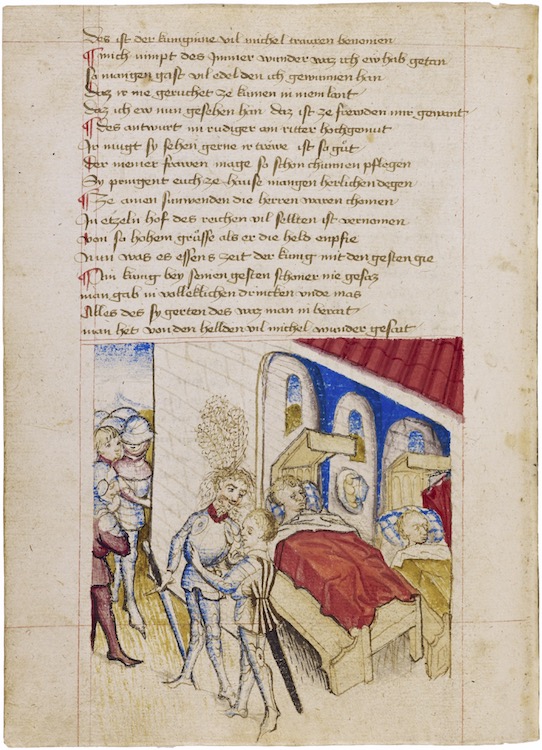 Des ist der kunginne vil michel trauren benomen
¶ Mich nimpt des Immer wunder waz ich ew hab getan
So mangen gast vil edel den ich gewunnen han
Daz ir nie geruchet ze kumen in mein lant
Daz ich ew nun gesehen han daz ist ze frewden mir gewant
¶ Des antwurt im rudiger ain ritter hochgemut
Ir mugt sy sehen gerne ir trewe ist so gůt
Der meiner frawen mage so schon chunnen pflegen
Sy pringent euch ze hause mangen herlichen degen
¶ Ze ainen sunwenden die herren waren chomen
In etzeln hof des reichen vil sellten ist vernomen
Von so hohem grůsse als er die held enpfie
Nun was es essens zeit der kunig mit den gesten gie
¶ Ain kunig bey seinen gesten schoner nie gesaz
man gab in volleklichen drincken unde mas
Alles des sy gerten des waz man in berait
man het von den hellden vil michel wunder gesait